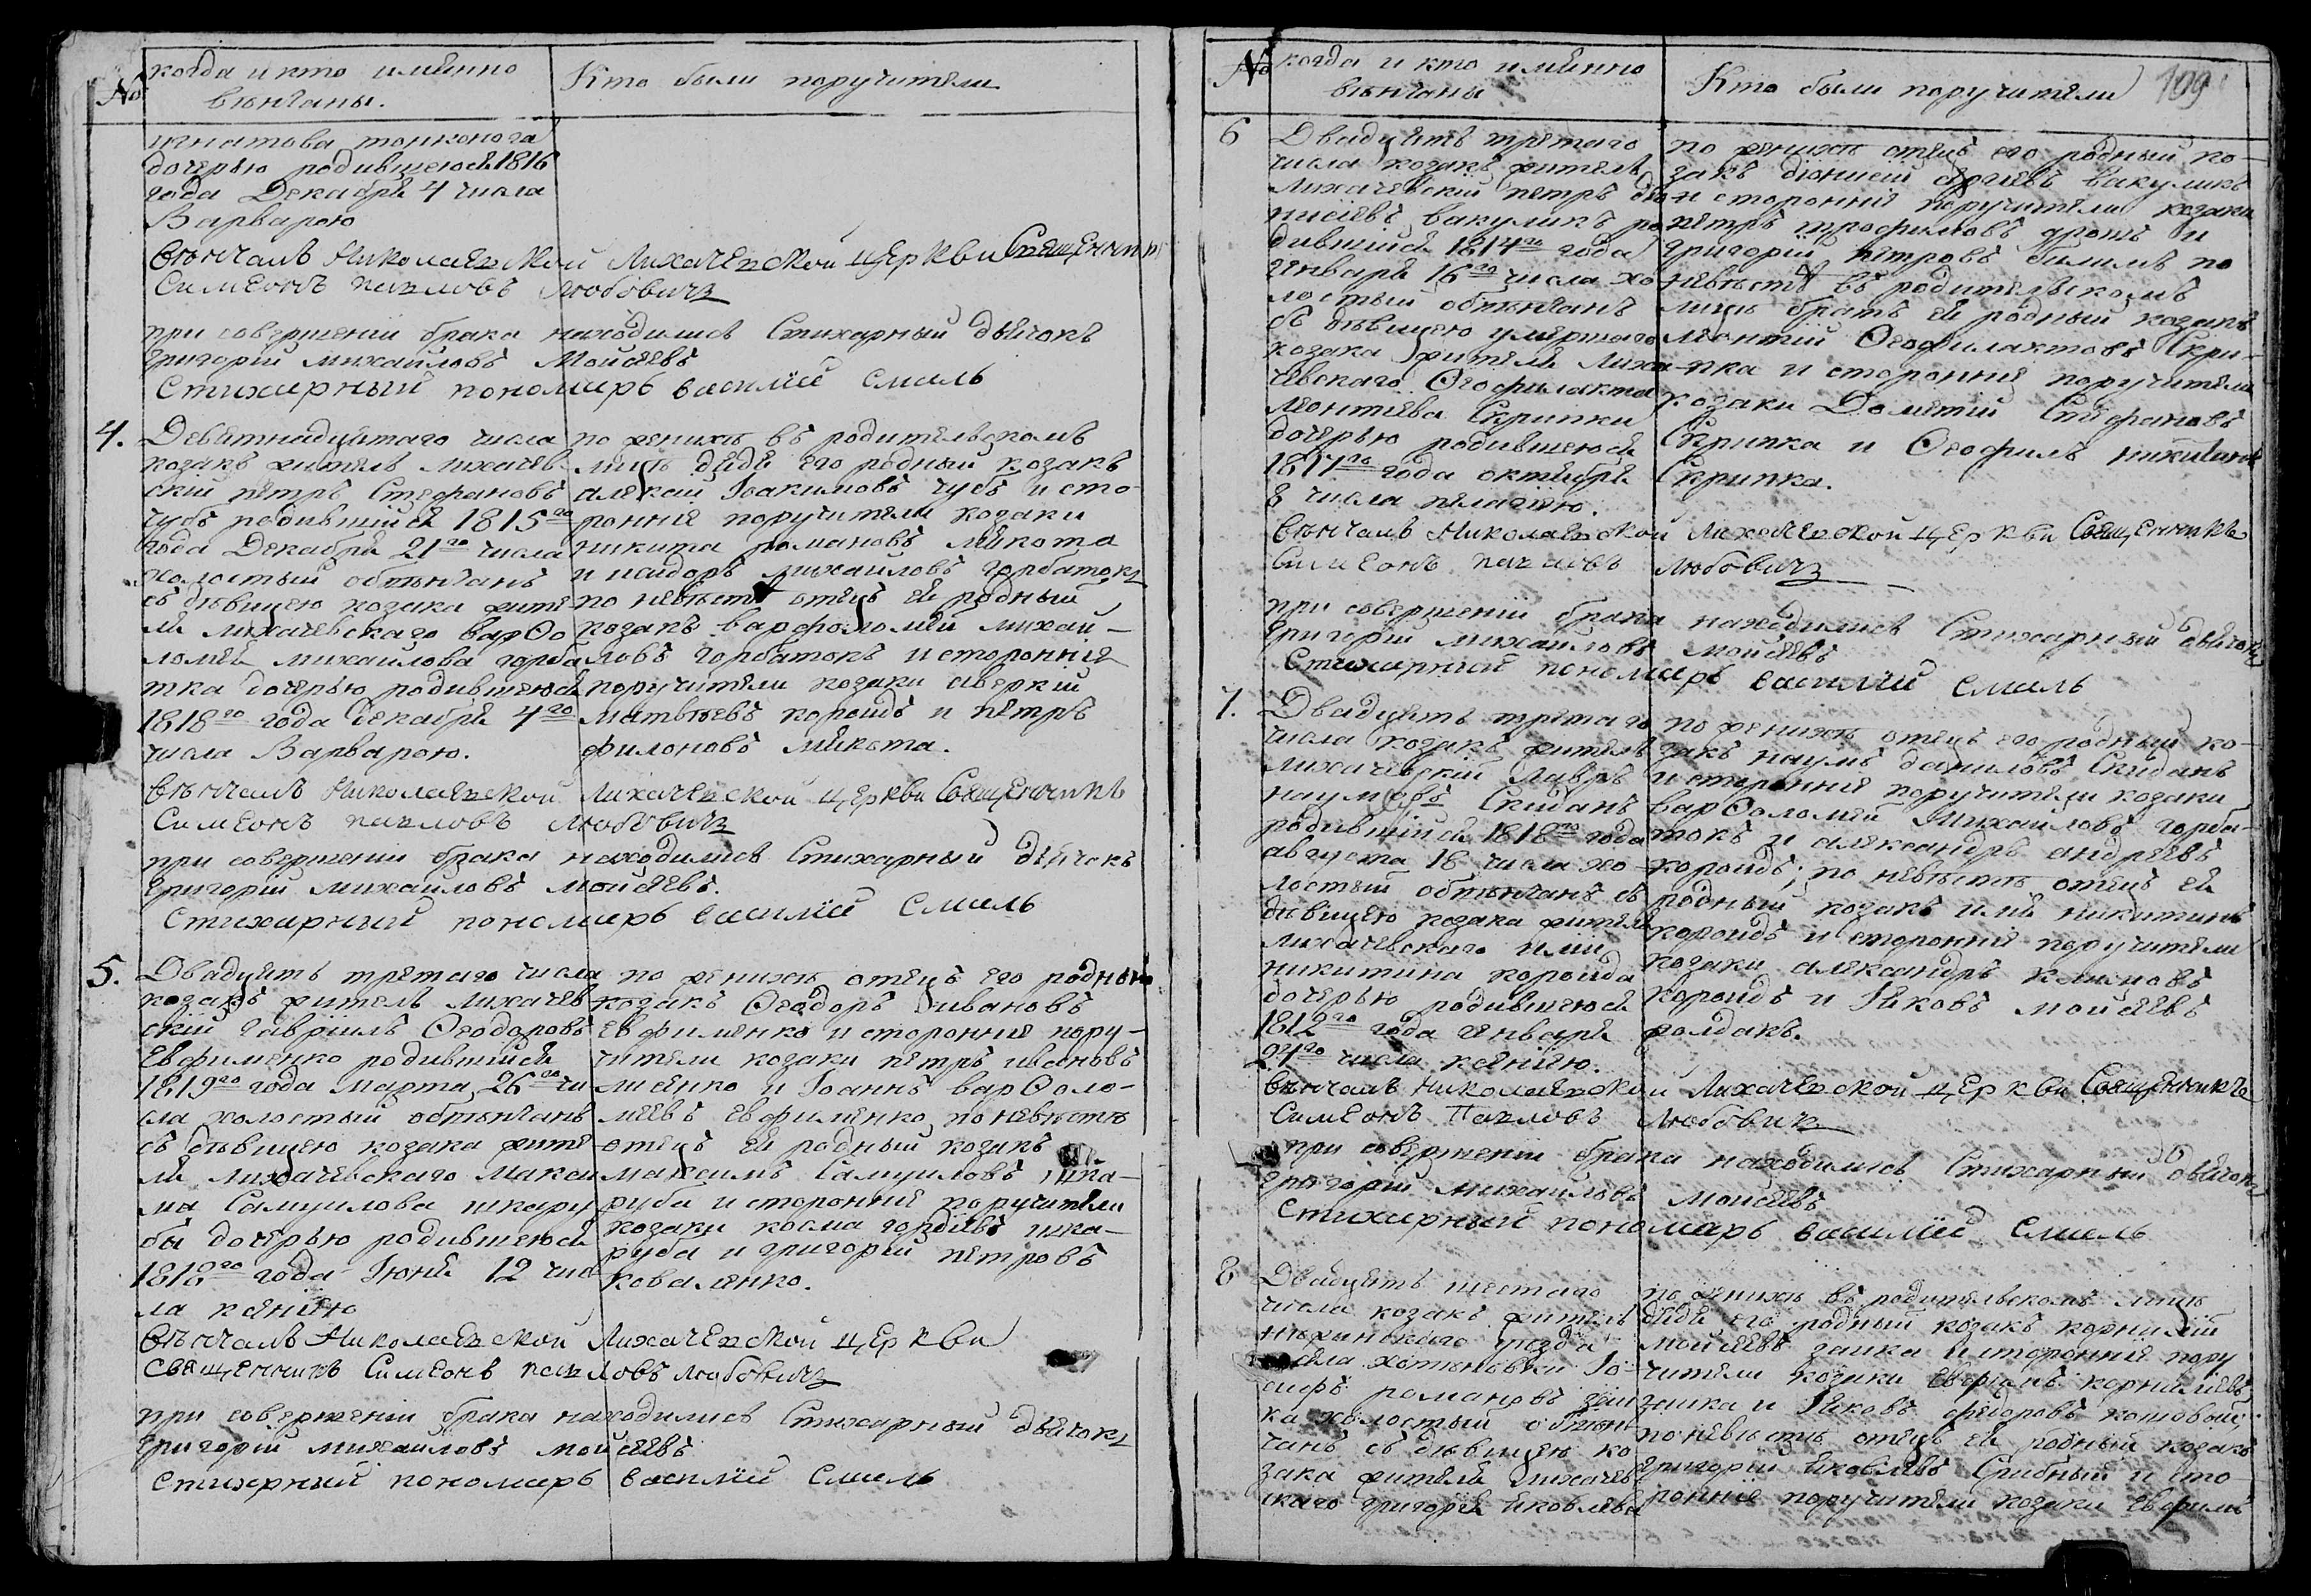 №
когда и кто имѣнно
вѣнчаны.
Кто были поручители
игнатова тонконога
дочерью родившеюся 1816
года Декабря 4 числа
Варварою
вѣнчалъ Николаевской Лихачевской церкви Священникъ
Симеонъ павловъ Любовичъ
при совершеніи брака находились Стихарный дьячокъ
григорій михаиловъ Мойсѣевъ
Стихарный пономарь василій Смаль
4.
Девятнадцятаго числа
козакъ жытель лихачев-
скій пѣтръ Стефановъ
чубъ родившійся 1815го
года Декабря 21го числа
холостый обвѣнчанъ
съ дѣвицею козака жите-
ля лихачевскаго варѳо
ломѣя михаилова горба
тка дочерью родившеюся
1818го года декабря 4го
числа Варварою.
по жениху въ родительскомъ
лицѣ дядя его родный козакъ
алексѣй Іоакимовъ чубъ и сто-
ронніе поручители козаки
никита романовъ мѣкота
и исидоръ михаиловъ горбатокъ
по невѣстѣ отецъ ея родный
козакъ варфоломей михай-
ловъ горбатокъ и сторонніе
поручители козаки аверкій
матвѣевъ короидъ и пѣтръ
филоновъ мѣкота.
вѣнчалъ Николаевской Лихачевской церкви Священникъ
Симеонъ павловъ Любовичъ
при совершеніи брака находились Стихарный дьячокъ
григорій михаиловъ мойсѣевъ.
Стихарный пономарь василій Смаль
5.
Двадцять третаго числа
козакъ житель лихачев
скій гавріилъ Ѳеодоровъ
Ефименко родившійся
1819го года марта 26го чи
сла холостый обвѣнчанъ
съ дѣвицею козака жите
ля лихачевскаго макси
ма Самуилова шкару
бы дочерью родившеюся
1818го года Іюня 12 чис
ла ксеніею
по жениху отецъ его родный
козакъ Ѳеодоръ ивановъ
Ефименко и сторонніе пору-
чители козаки пѣтръ ивановъ
лисенко и Іоаннъ варѳоло-
меевъ ефименко, по невѣстѣ
отецъ ея родный козакъ
максимъ Самуиловъ шка-
руба и сторонніе поручители
козаки косма гордѣевъ шка-
руба и григорій пѣтровъ
коваленко.
вѣнчалъ Николаевской Лихачевской церкви
священникъ Симеонъ павловъ любовичъ
при совершеніи брака находились Стихарный дьячокъ
григорій михаиловъ мойсѣевъ
Стихарный пономарь василій Смаль
№
когда и кто имѣнно
вѣнчаны
Кто были поручители
109
6
Двадцять третаго
числа козакъ житель
лихачевскій пѣтръ діо
нисіевъ вакуликъ ро
дившійся 1814го года
генваря 16го числа хо
лостый обвѣнчанъ
съ дѣвицею умершаго
козака жителя лиха
чевскаго Ѳеофилакта
леонтіева Скрипки
дочерью родившеюся
1817го года октября
8 числа пелагіею.
по жениху отецъ его родный ко-
закъ діонисій вакуликъ
и сторонніе поручители козаки
пѣтръ трофимовъ и
григорій пѣтровъ по
невѣстѣ въ родительскомъ
лицѣ братъ ея родный козакъ
леонтій Ѳеофилактовъ Скри-
пка и сторонніе поручители
козаки Дометій Стефановъ
Скрипка и Ѳеофилъ никитинъ
Скрипка.
вѣнчалъ Николаевской Лихачевской церкви Священникъ
Симеонъ павловъ любовичъ
при совершеніи брака находились Стихарный дьячокъ
григорій михаиловъ мойсѣевъ
Стихарный пономарь василій Смаль
7.
Двадцять третаго
числа козакъ житель
лихачевскій Лавръ
наумовъ Скиданъ
родившійся 1818го года
августа 18 числа хо
лостый обвѣнчанъ съ
дѣвицею козака жителя
лихачевскаго иліи
никитина короида
дочерью родившеюся
1812го года генваря
24го числа ксеніею.
по жениху отецъ его родный ко-
закъ наумъ даниловъ Скиданъ
и сторонніе поручители козаки
варѳоломей Михаиловъ горба-
токъ и александръ андреевъ
короидъ; по невѣстѣ отецъ ея
родный козакъ илія никитинъ
короидъ и сторонніе поручители
козаки александръ
короидъ и Іяковъ мойсѣевъ
вѣнчалъ Николаевской Лихачевской церкви Священникъ
Симеонъ Павловъ Любовичъ
при совершеніи брака находились Стихарный дьячокъ
григорій михаиловъ мойсѣевъ
Стихарный пономарь василій Смаль
8
Двадцять шестаго
числа козакъ житель
нѣжинскаго уезда
села хотыновки Іо-
сифъ романовъ заи
ка холостый обвѣн
чанъ съ дѣвицею ко
зака жителя лихачев
скаго григорія яковлева
по жениху въ родительскомъ лицѣ
дядя его родный козакъ корнилій
мойсѣевъ заика и сторонніе пору
чители козаки корниліевъ
заика и Іяковъ федоровъ кошовый,
по невѣстѣ отецъ ея родный козакъ
григорій яковлевъ и сто
ронніе поручители козаки ефимъ